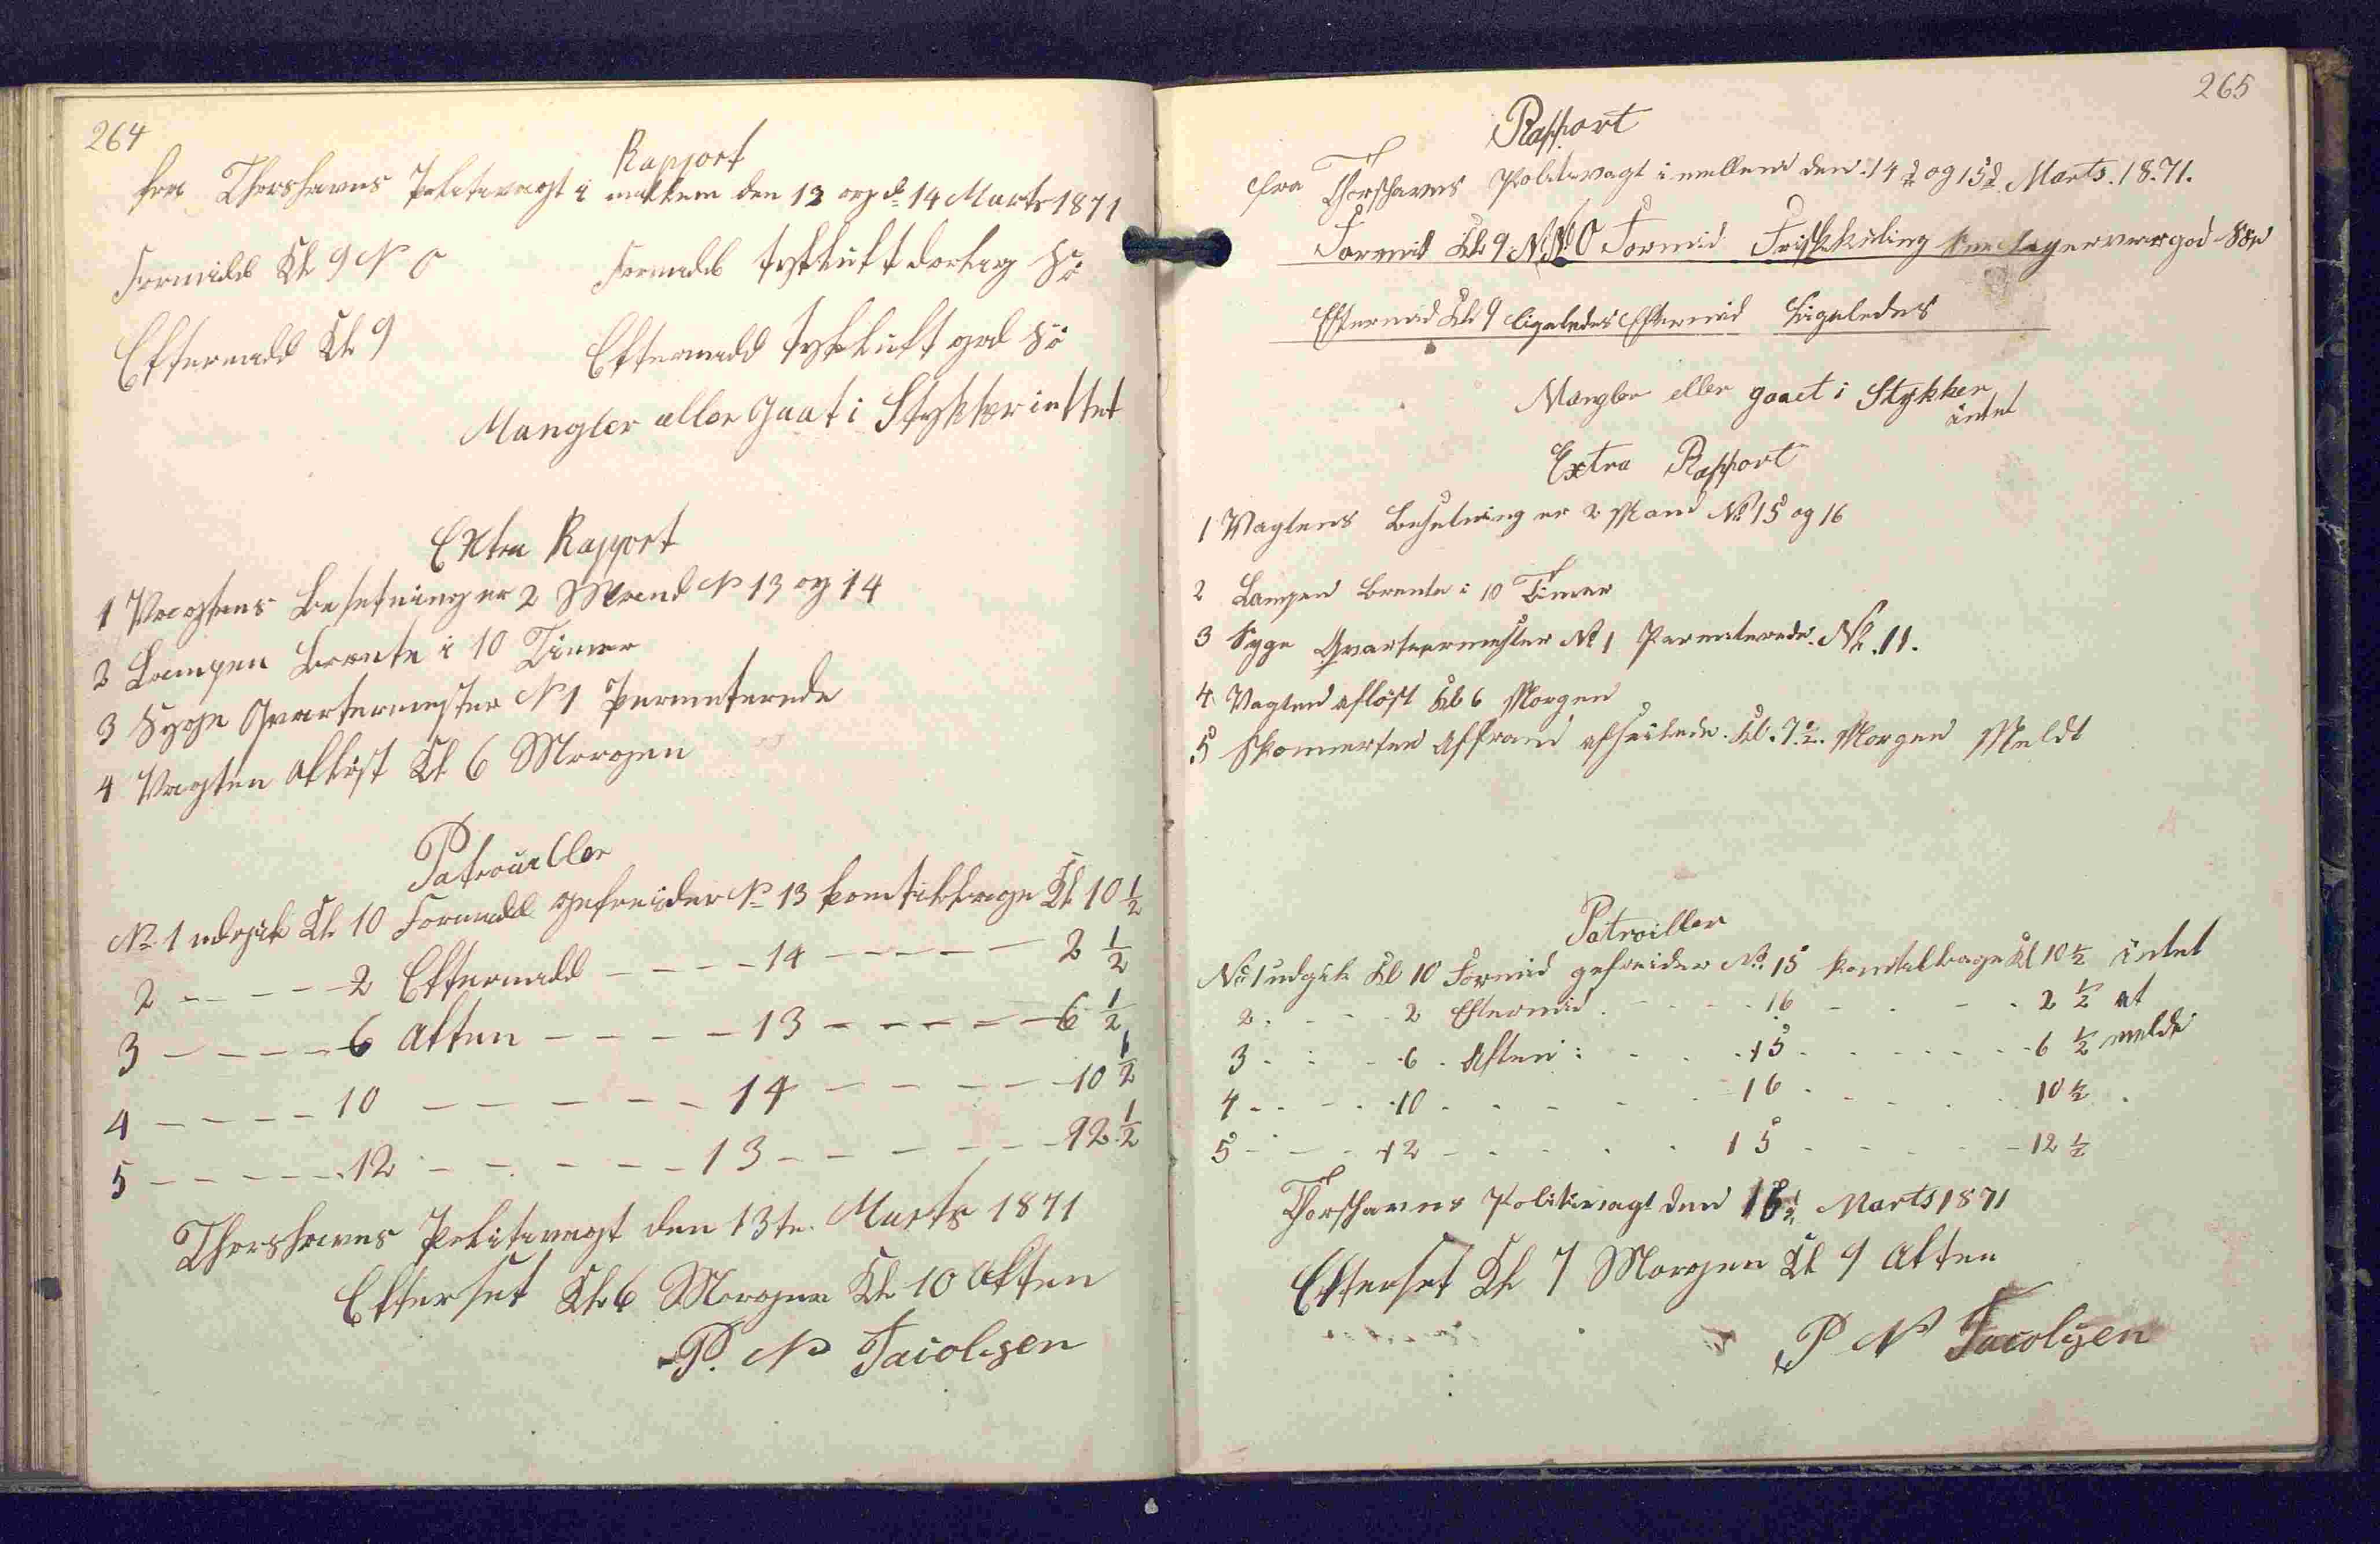 264
Rapport
fra Thorshavns Politivagt i mellem den 13 og d. 14 Marts 1871
Formidd Kl 9 N O Formidd tyk luft dorlig Sö
Eftermidd Kl 9 Eftermidd tyk Luft god Sö
Mangler eller Gaat i Stykker inttet
Extra Rapport
1 Vagtens Besetning er 2 Mand No 13 og 14
2 Lampen brente i 10 Timer
3 Syge Qvartermester No 1 permiterede
4 Vagten Aflöst Kl 6 Morgen
Patrouiller
No 1 udgik Kl 10 Formidd gefreider No 13 kom tilbage Kl 10 1/2
2 - - - - 2 Eftermidd - - - - 14 - - - - - 2 1/2
3 - - - - 6 Aften - - - - 13 - - - - - 6 1/2
4 - - - - 10 - - - - - - 14 - - - - - 10 1/2
5 - - - - - 12 - - - - - - 13 - - - - - - 12 1/2
Thorshavns Politivagt den 13te. Marts 1871
Efterset Kl 6 Morgen Kl 10 Aften
P. N Jacobsen
265
Rapport
fra Thorshavns Politivagt i mellem den 14d og 15d Marts. 1871.
Formid Kl 9 N.N.O Formid Frisk kuling god Söe
Eftermid Kl 9 ligeledes Eftermid Ligeledes
Mangler eller gaaet i Stykker
intet
Extra Rapport
1 Vagtens Besetning er 2 Mand No 15 og 16
2 Lampen brente i 10 Timer
3 Syge Qvartermester No 1 Permiterede. No. 11.
4 Vagten aflöst Kl 6 Morgen
5 Skonnerten afseilede. Kl. 7 1/2. Morgen Meldt
Patroiller
No 1 udgik Kl 10 Formid gefreider No. 15 kom tilbage Kl 10 1/2 intet
2 . - - - 2 Eftermid . - - - 16 - . - . 2 1/2 at
3 - - - 6 . Aften : . . . 15 . . . - - - 6 1/2 melde
4 - - - . 10 . . - - - 16 . . . . . 10 1/2 .
5 - - - 12 - - . . . 15 . - . - - 12 1/2
Thorshavns Politivagt den Marts 1871
Efterset Kl 7 Morgen Kl 9 Aften
P N Jacobsen